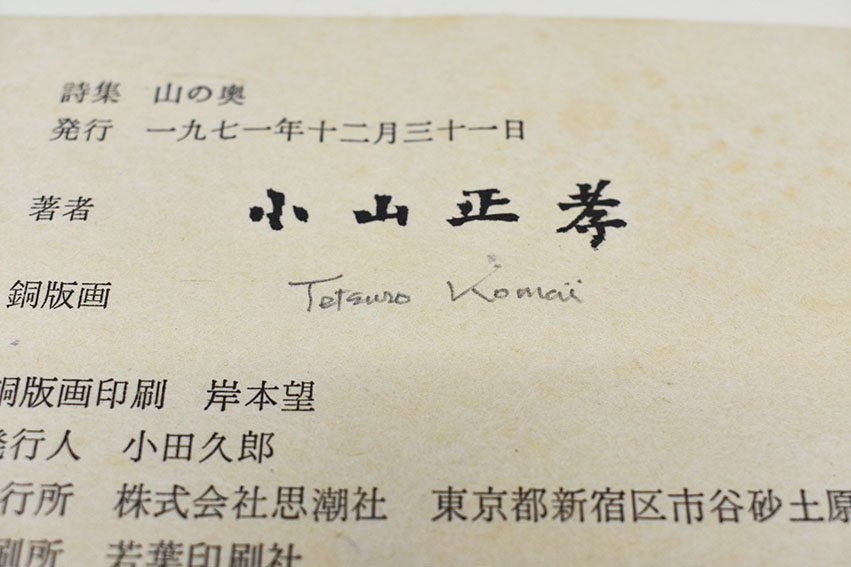 詩集 山の奥
発行 一九七一年十二月三十一日
著者 小山正孝
銅版画 Tetsuro Komai
銅版画印刷 岸本望
発行人 小田久郎
行所 株式会社思潮社 東京都新宿区市谷砂土原
刷所 若葉印刷社